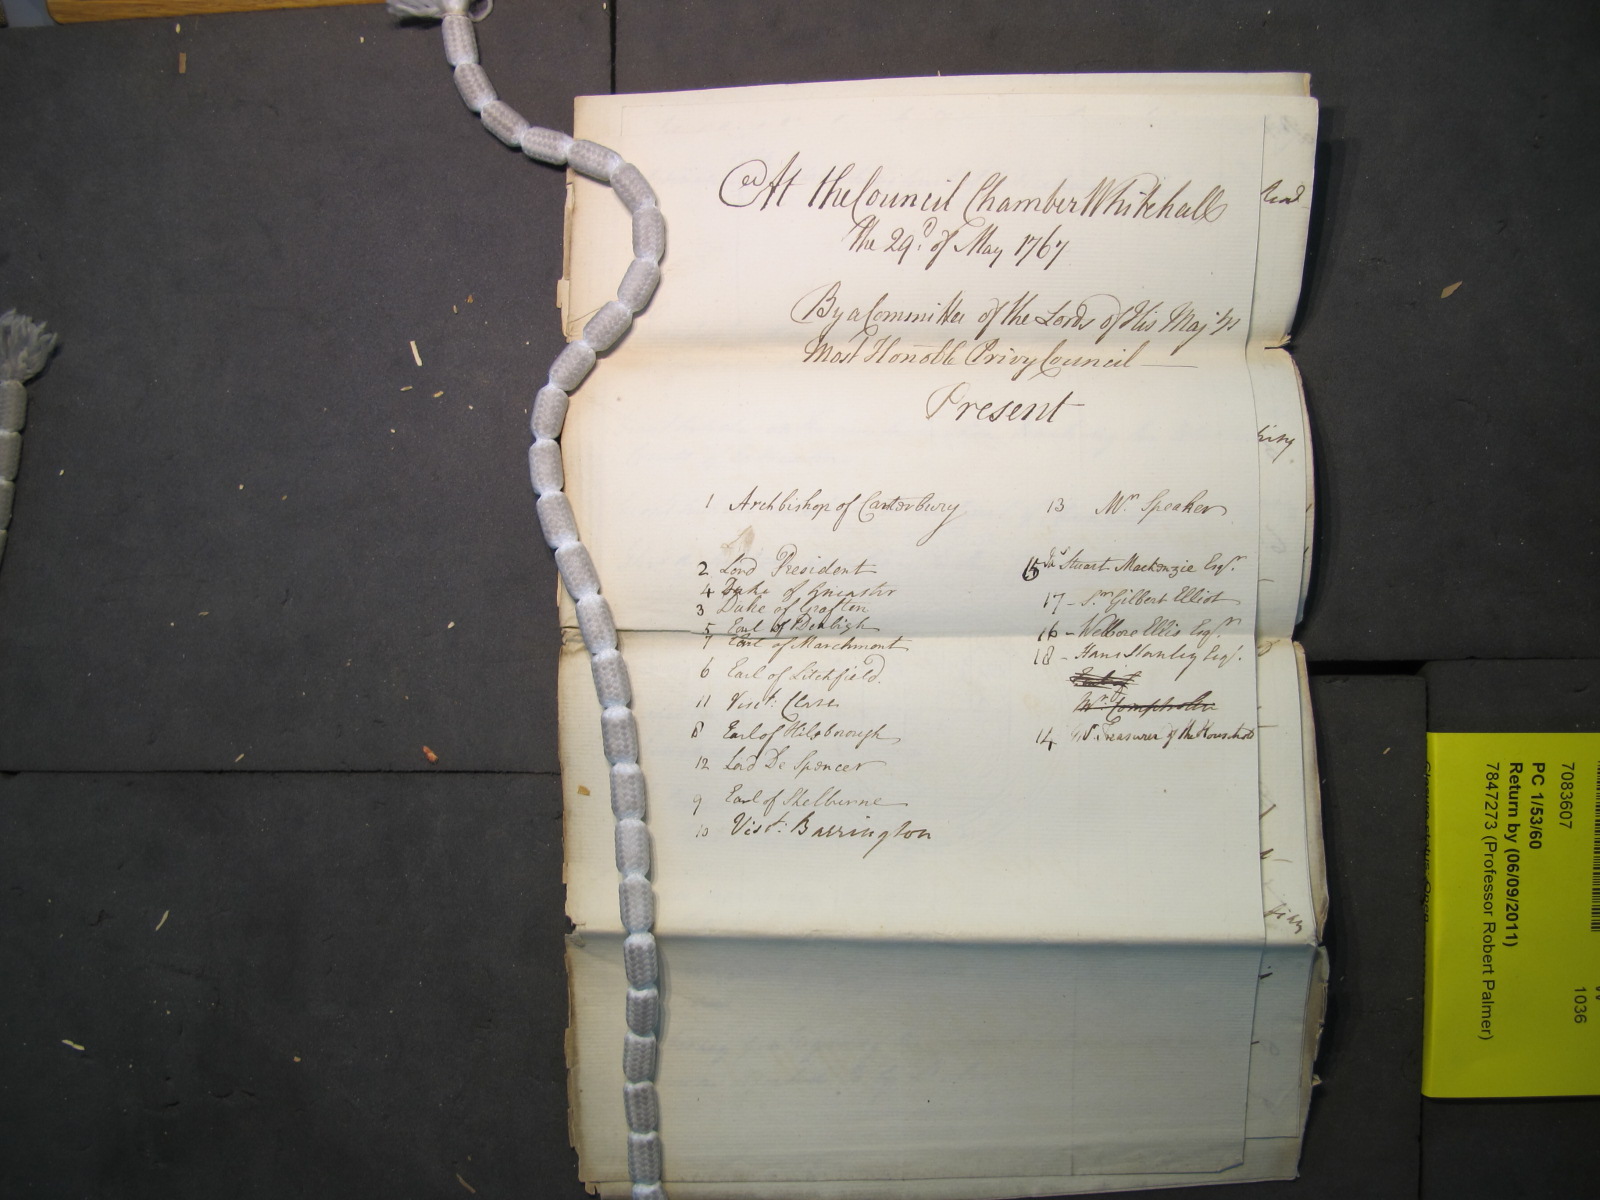 At the Council Chamber Whitehall
the 29.d of May 1767
By a Committee of the Lords of His Maj'tys
Most Honoble Privy Council
Present
1 Archbishop of Canterbury
2 Lord President
4 Duke of Ancaster
3 Duke of Grafton
5 Earl of Denbigh
7 Earl of Marchmont
6 Earl of Litchfield.
11 Visct. Clare
8 Earl of Hilsborough
12 Lord De Spencer
9 Earl of Shelburne
10 Visct. Barrington
13 Mr. Speaker
15 Jas Stuart Mackenzie Esqr.
17 - Sr. Gilbert Elliot
16 - Welbore Ellis Esqr.
18 - Hans Stanley Esqr.
14 Treasurer of the Household
7083607
PC 1/53/60
Return by (06/09/2011)
7847273 (Professor Robert Palmer)
1036